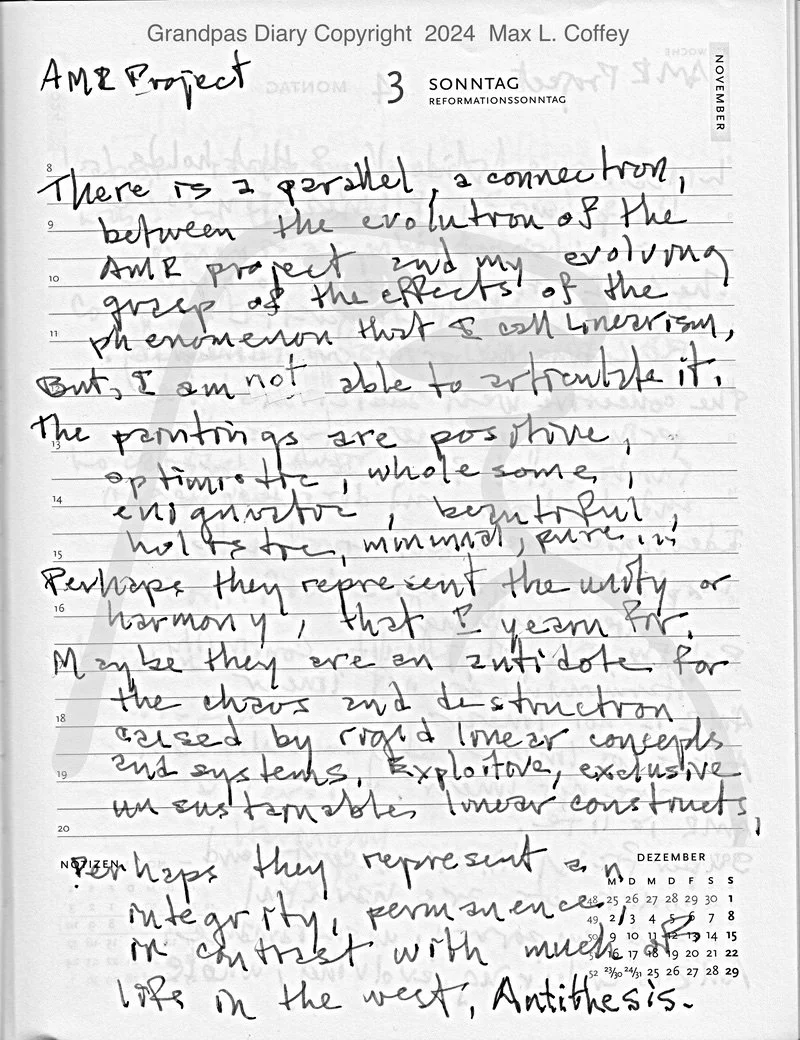 Grandpas Diary Copyright 2024 Max L. Coffey
AMR Project
3 SONNTAG
REFORMATIONSSONNTAG
NOVEMBER
8
There is a parallel, a connection,
9
between the evolution of the
AMR project and my evolving
10
grasp of the effects of the
11
phenomenon that I call Linearism,
But, I am not able to articulate it.
13
The paintings are positive,
optimistic, wholesome,
14
enigmatic, beautiful,
15
holistic, minimal, pure in
Perhaps they represent the unity or
16
harmony, that I yearn for.
Maybe they are an antidote for
18
the chaos and destruction
caused by rigid linear concepts
19
and systems. Exploitive, exclusive
unsustainable linear constructs,
20
NOTIZEN
Perhaps they represent an
integrity, permanence,
in contrast with much of
life in the west, Antithesis.
DEZEMBER
M D M D F S S
48 25 26 27 28 29 30 1
49 2 3 4 5 6 7 8
50 9 10 11 12 13 14 15
16 17 18 19 20 21 22
52 23/30 24/31 25 26 27 28 29